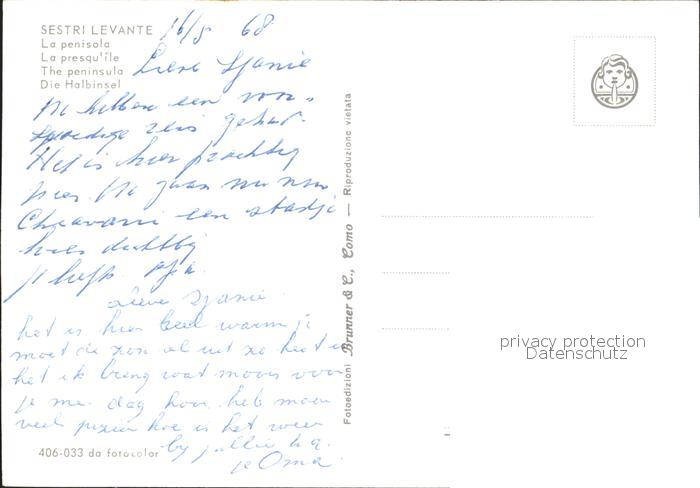 SESTRI LEVANTE
La penisola
La presqu'île
The peninsula
Die Halbinsel
16/5 68
Lieve Sjanie
We hebben een voor-
spoedige reis gehad.
Het is hier prachtig
een stadje
hier dichtbij
Je liefh opa.
Lieve Sjanie
het is hier heel warm je
moet de zon al uit zo heet is
het ik breng wat moois voor
je mee dag hoor heb maar
veel plezier hoe is het weer
by jullie
je Oma.
406-033 da fotocolor
Fotoedizioni Brunner & C., Como — Riproduzione vietata
privacy protection
Datenschutz